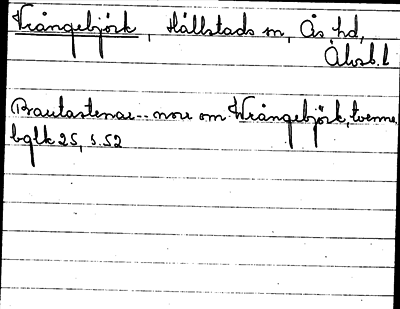 Vrångebjörk, Hällstads sn, Ås hd,
Älvsb.l
Brautastenar -- norr om Wrångebjörk, tvenne
bglk 25, s.52